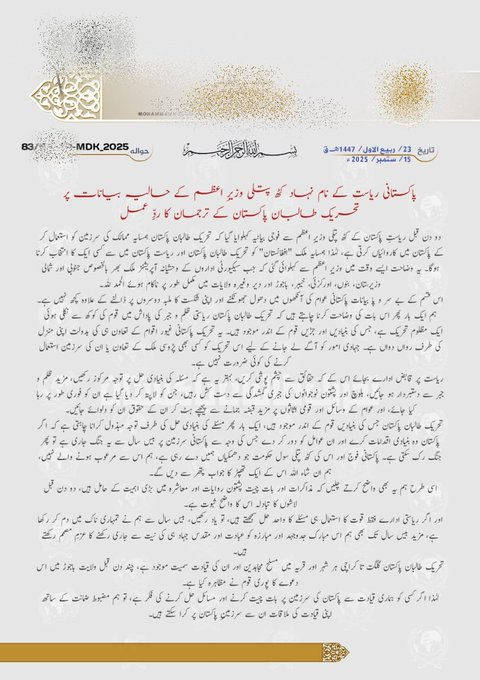 MOHAMMAM
تاریخ 23/ ربیع الاول / 1447ھ ق
15/ ستمبر / 2025ء
بسم اللہ الرحمن الرحیم
حوالہ MDK_2025 83/
پاکستانی ریاست کے نام نہاد کٹھ پتلی وزیرِ اعظم کے حالیہ بیانات پر
تحریک طالبان پاکستان کے ترجمان کا ردِّ عمل
دو دن قبل ریاستِ پاکستان کے کٹھ پتلی وزیر اعظم سے فوجی بیانیہ کہلوایا گیا کہ تحریک طالبان پاکستان ہمسایہ ممالک کی سرزمین کو استعمال کر
کے پاکستان میں کاروائیاں کرتی ہے، لہذا ہمسایہ ملک "افغانستان" کو تحریک طالبان پاکستان اور ریاست پاکستان میں سے کسی ایک کا انتخاب کرنا
ہوگا۔ یہ وضاحت ایسے وقت میں وزیر اعظم سے کہلوائی گئی کہ جب سیکیورٹی اداروں کے وحشیانہ آپریشنز ملک بھر بالخصوص جنوبی اور شمالی
وزیرستان، بنوں، اورکزئی، خیبر، باجوڑ اور دیر وغیرہ ولایات میں مکمل طور پر ناکام ہوئے الحمد للہ۔
اس قسم کے بے سر و پا بیانات پاکستانی عوام کی آنکھوں میں دھول جھونکنے اور اپنی شکست کا ملبہ دوسروں پر ڈالنے کے علاوہ کچھ نہیں ہے۔
ہم ایک بار پھر اس بات کی وضاحت کرنا چاہتے ہیں کہ تحریک طالبان پاکستان ریاستی ظلم و جبر کی پاداش میں قوم کی کوکھ سے نکلی ہوئی
ایک مظلوم تحریک ہے، جس کی بنیادیں اور جڑیں قوم کے اندر موجود ہیں۔ یہ تحریک پاکستانی غیور اقوام کے تعاون ہی کی بدولت اپنی منزل
کی طرف رواں دواں ہے۔ جہادی امور کو آگے لے جانے کے لیے اس تحریک کو کسی بھی پڑوسی ملک کے تعاون یا ان کی سرزمین استعمال
کرنے کی کوئی ضرورت نہیں ہے۔
ریاست پر قابض ادارے بجائے اس کے کہ حقائق سے چشم پوشی کریں، بہتر یہ ہے کہ مسئلہ کی بنیادی حل پر توجہ مرکوز رکھیں، مزید ظلم و
جبر سے دستبردار ہو جائیں، بلوچ اور پشتون نوجوانوں کی جبری گمشدگی سے دست کش رہیں، جن کو لاپتہ کر دیا گیا ہے ان کو فوری طور پر رہا
کیا جائے، اور عوام کے وسائل اور قومی اثاثوں پر مزید قبضہ جمانے سے پیچھے ہٹ کر ان کے حقوق ان کو دلوائے جائیں۔
تحریک طالبان پاکستان جس کی بنیادیں قوم کے اندر موجود ہیں، ایک بار پھر مسئلے کی بنیادی حل کی طرف توجہ مبذول کرانا چاہتی ہے کہ اگر
پاکستان وہ بنیادی اقدامات کرے اور ان عوامل کو دور کر دے جس کی وجہ سے پاکستانی سرزمین پر بیس سال سے یہ جنگ جاری ہے تو پھر
جنگ رک سکتی ہے۔ پاکستانی فوج اور اس کی کٹھ پتلی سول حکومت جو دھمکیاں ہمیں دے رہی ہے، ہم اس سے مرعوب ہونے والے نہیں،
ہم ان شاء اللہ اس کے ایک تھپڑ کا جواب پتھر سے دیں گے۔
اسی طرح ہم یہ بھی واضح کرتے چلیں کہ مذاکرات اور بات چیت پشتون روایات اور معاشرہ میں بڑی اہمیت کے حامل ہیں، دو دن قبل
لاشوں کا تبادلہ اس کا واضح ثبوت ہے۔
اور اگر ریاستی ادارے فقط قوت کا استعمال ہی مسئلے کا واحد حل سمجھتے ہیں، تو یاد رکھیں، بیس سال سے ہم نے تمہاری ناک میں دم کر رکھا
ہے، مزید بیس سال تک بھی ہم اس مبارک جدوجہد اور مبارزہ کو عبادت اور مقدس جہاد ہی کی نیت سے جاری رکھنے کا عزم مصمم رکھتے
ہیں۔
تحریک طالبان پاکستان گلگت تا کراچی ہر شہر اور قریہ میں مسلح مجاہدین اور ان کی قیادت سمیت موجود ہے، چند دن قبل ولایت باجوڑ میں اس
دعوے کا پوری قوم نے مظاہرہ کیا ہے۔
لہٰذا اگر کسی کو ہماری قیادت سے پاکستان کی سرزمین پر بات چیت کرنے اور مسائل حل کرنے کی فکر ہے، تو ہم مضبوط ضمانت کے ساتھ
اپنی قیادت کی ملاقات ان سے سرزمین پاکستان پر کرا سکتے ہیں۔